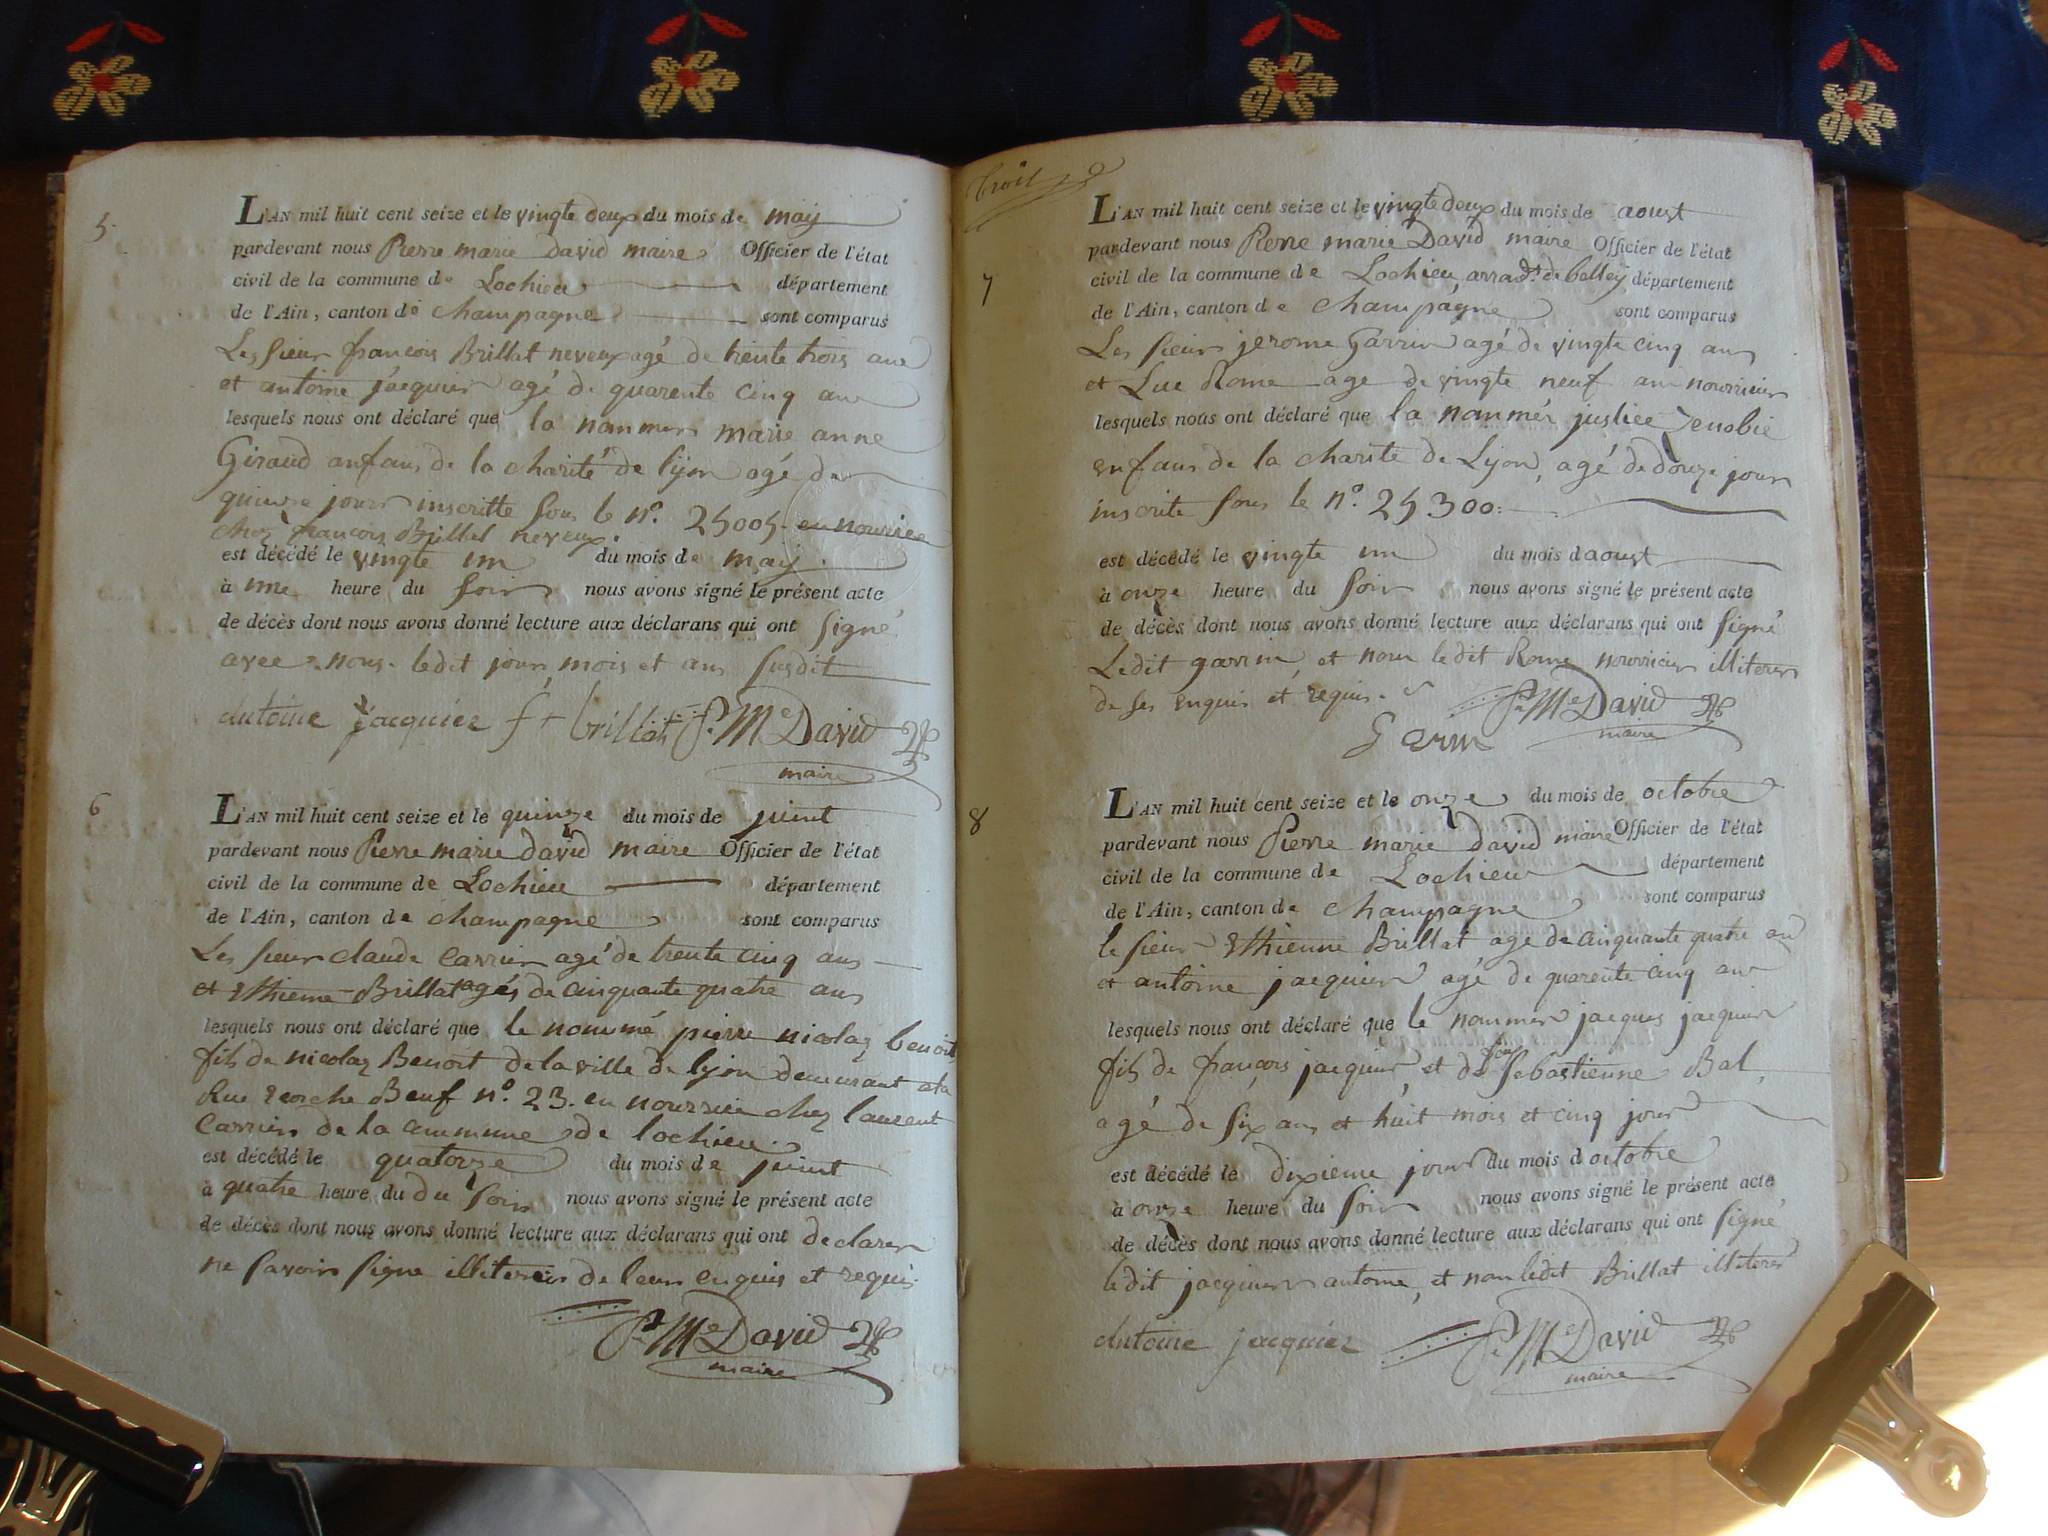 5.
L'AN mil huit cent seize et le vingte deux du mois de may
pardevant nous Pierre marie david maire Officier de l'état
civil de la commune de Lochieu département
de l'Ain, canton de champagne sont comparus
Les sieur françois Brillat neveux agé de trente trois ans
et antoine jacquier agé de quarente cinq ans
lesquels nous ont déclaré que la nommer marie anne
Giraud anfans de la charité de lyon agé de
quinze jours inscritte sous le n°. 25005. en nourice
chez françois Brillat neveux.
est décédé le vingte un du mois de may.
à une heure du soir nous avons signé le présent acte
de décès dont nous avons donné lecture aux déclarans qui ont signé
avec nous ledit jour, mois et ans susdit
antoine jacquier f + brillat P. Me David
maire
6
L'AN mil huit cent seize et le quinze du mois de juint
pardevant nous Pierre marie david maire Officier de l'état
civil de la commune de Lochieu département
de l'Ain, canton de champagne sont comparus
Les sieur claude Carrier agé de trente cinq ans
et Ethienne Brillat agés de cinquante quatre ans
lesquels nous ont déclaré que le nommé pierre nicolas benoit
fils de nicolas Benoit de la ville de lyon demeurant a la
Rue Ecorche Beuf n°. 23. en nourrice chez laurent
Carrier de la commune de lochieu.
est décédé le quatorze du mois de juint
à quatre heure du du soir nous avons signé le présent acte
de décès dont nous avons donné lecture aux déclarans qui ont declarer
ne savoir signe illiterer de leur enquis et requis
P. Me David
maire
troit
7
L'AN mil huit cent seize et le vingte deux du mois de aoust
pardevant nous Pierre marie David maire Officier de l'état
civil de la commune de Lochieu, arrad.t de belley département
de l'Ain, canton de champagne sont comparus
Les sieur jerome Garrin agé de vingte cinq ans
et Luc Rome age de vingte neuf ans nourricier
lesquels nous ont déclaré que la nommér justice Zenobie
enfans de la charité de Lyon, agé de douze jours
inscrite sous le n°. 25300.
est décédé le vingte un du mois d aoust
à onze heure du soir nous avons signé le présent acte
de décès dont nous avons donné lecture aux déclarans qui ont signé
Ledit garrin, et non ledit Rome nourricier illiterer
de ses enquis et requis. P. Me David
maire
Garin
8
L'AN mil huit cent seize et le onze du mois de octobre
pardevant nous Pierre marie david maire Officier de l'état
civil de la commune de Lochieu département
de l'Ain, canton de champagne sont comparus
le sieur Ethienne Brillat age de cinquante quatre an
et antoine jacquier agé de quarente cinq ans
lesquels nous ont déclaré que le nommer jacques jacquier
fils de françois jacquier, et de feu Sebastienne Bal,
agé de six ans et huit mois et cinq jour
est décédé le dixieme jour du mois d octobre
à onze heure du soir nous avons signé le présent acte
de décès dont nous avons donné lecture aux déclarans qui ont signé
ledit jacquier antoine, et non ledit Brillat illiterer
antoine jacquier P. Me David
maire